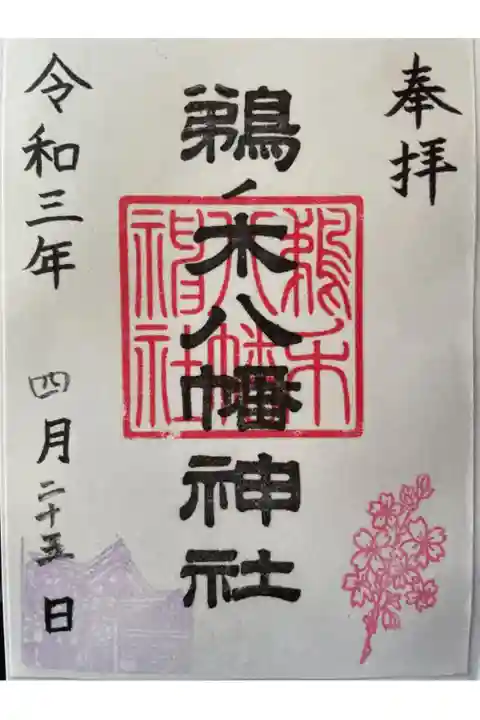 奉拝
鵜ノ木八幡神社
鵜木八幡神社
令和三年 四月二十五日